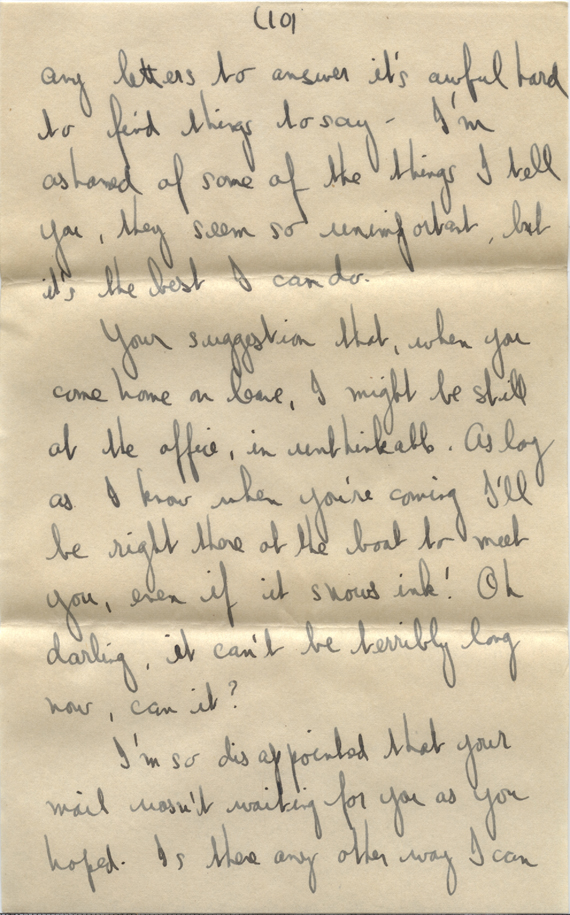 (10)
any letters to answer it's awful hard
to find things to say - I'm
ashamed of some of the things I tell
you, they seem so unimportant, but
it's the best I can do.
Your suggestion that, when you
come home on leave, I might be still
at the office, in unthinkable. As long
as I know when you're coming I'll
be right there at the boat to meet
you, even if it snows ink! Oh
darling, it can't be terribly long
now, can it?
I'm so disappointed that your
mail wasn't waiting for you as you
hoped. Is there any other way I can